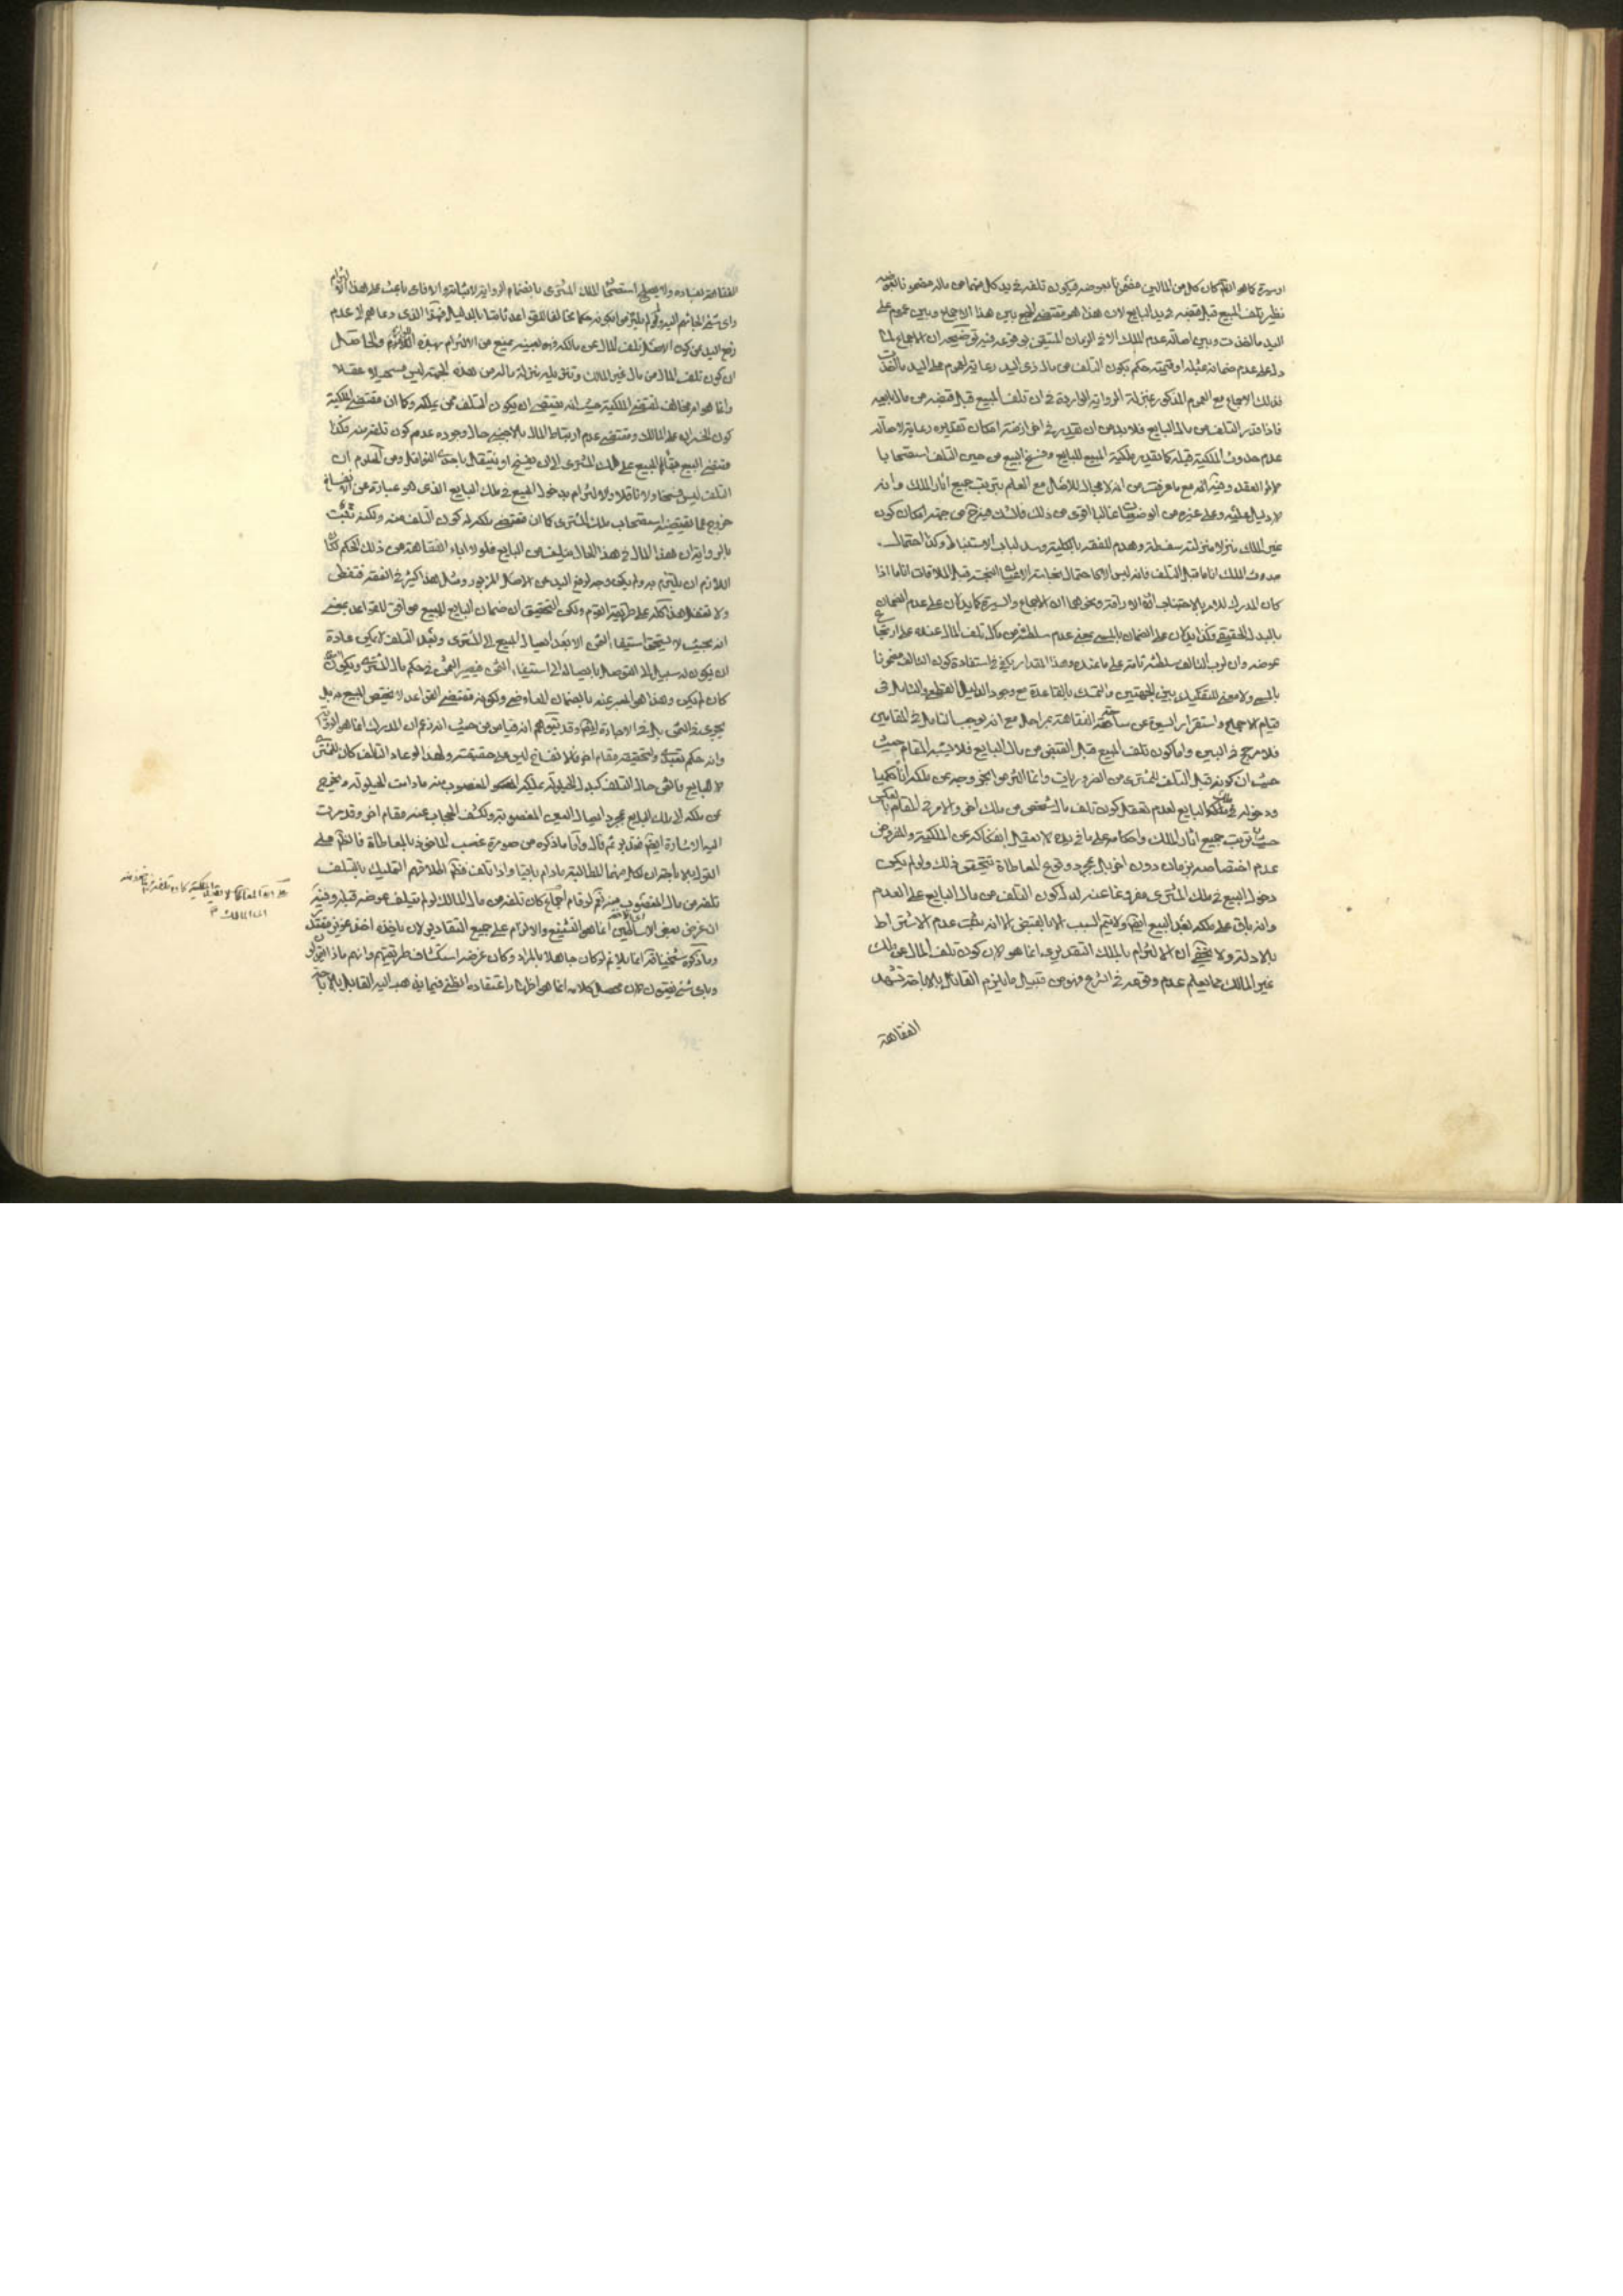 او سيرة كما هو الظم كان كل من المالين مضمونا بعوضه فيكون تلفه في يد كل منهما من ماله مضمونا بعوضه
نظير تلف المبيع قبل قبضه في يد البايع لان هذا هو مقتضى الجمع بين هذا الاجماع وبين عموم على
اليد ما اخذت وبين اصالة عدم الملك الا في الزمان المتيقن وقوعه فيه توضيحه ان الاجماع لما
دل على عدم ضمانه بمثله او قيمته حكم بكون التلف من مال ذي اليد رعاية لعموم على اليد ما اخذت
فذلك الاجماع مع العموم المذكور بمنزلة الرواية الواردة في ان تلف المبيع قبل قبضه من مال بايعه
فاذا قدر التلف من مال البايع فلا بد من ان يقدر في اخر ازمنة امكان تقديره رعاية لاصالة
عدم حدوث الملكية قبله كما يقدر ملكية المبيع للبايع وفسخ البيع من حين التلف استصحابا
لاثر العقد وفيه انه مع ما عرفت من انه لا مجال للاصل مع العلم بترتب جميع اثار الملك وانه
لا دليل عليه وعلى غيره من غالبا اقوى من ذلك من جهة امكان كون
غير الملك منزلا منزلته سفسطة وهدم للفقه بالكلية وسد لباب الاستنباط وكذا احتمال
حدوث الملك انا ما قبل التلف فانه ليس الا كاحتمال نجاسة قبل الملاقات انا ما اذا
كان المدرك للامر بالاجتناب اثر الاراقة ونحوها ان الاجماع والسيرة كما يدلان على عدم الضمان
بالبدل الحقيقي وكذا يدلان على الضمان بالمسمى بمعنى عدم سلطنة من تلف المال عنده على ارتجاع
عوضه وان لرب التالف سلطنة تامة على ما عنده وهذا المقدار يكفي في استفادة كون التالف مضمونا
بالمسمى ولا معنى للتفكيك بين الجهتين والتمسك بالقاعدة مع وجود الدليل القطعي والتأمل في
قيام الاجماع واستقرار السيرة عن ساحة الفقاهة بمراحل مع انه يوجب التأمل في المقامين
فلا مرجح في البين واما كون تلف المبيع قبل القبض من مال البايع فلا يشبه المقام حيث
حيث ان كونه قبل التلف للمشتري من الضروريات وانما التزموا بخروجه عن ملكه انا ما حكميا
ودخوله في ملك البايع لعدم تعقل كون تلف مال شخص من ملك اخر والامر في المقام بالعكس
حيث ترتب جميع اثار الملك واحكامه على ما في يده لا يعقل انفكاكه عن الملكية والمفروض
عدم اختصاصه بزمان دون اخر بل بمجرد وقوع المعاطاة تتحقق ذلك ولو لم يكن
دخول المبيع في ملك المشتري مفروغا عنه لدل كون التلف من مال البايع على العدم
وانه باق على ملكه بعد البيع ايضا ولا يتم السبب الا بالقبض الا انه يثبت عدم الاشتراط
بالادلة ولا يخفى ان الالتزام بالملك التقديري انما هو لان كون تلف المال عن ملك
غير المالك مما يعلم عدم وقوعه في الشرع وهو من قبيل ما يلزم القائل بالاباحة تشهد
الفقاهة
الفقاهة بفساده ولا يصلح استصحاب الملك المشتري بانضمام الرواية لاثباته والا فاي باعث على هذا الالتزام
واي شيء الجاهم اليه ولم لم يلتزموا بكونه حكما مخالفا للقواعد ثابتا بالدليل فهذا الذي دعاهم الى عدم
رفع اليد عن كون الاصل تلف المال عن مالكه فهو بعينه يمنع من الالتزام بهذه اللوازم والحاصل
ان كون تلف المال من مال غير المالك وتنزيله منزلة ماله من هذه الجهة ليس مستحيلا عقلا
وانما هو امر مخالف لمقتضى الملكية حيث انه يقتضي ان يكون التلف ممن يملكه وكما ان مقتضى الملكية
كون الخسران على المالك ومقتضى عدم ارتباط المال بالاجنبي حال وجوده عدم كون تلفه منه فكذا
مقتضى البيع بقاء المبيع على ملك المشتري الى ان يفسخ او ينتقل باحدى النواقل ومن المعلوم ان
التلف ليس فسخا ولا ناقلا والالتزام بدخول المبيع في ملك البايع الذي هو عبارة عن الانفساخ
خروج عما يقتضيه استصحاب ملك المشتري كما ان مقتضى ملكه له كون التلف منه ولكنه ثبت
بالرواية ان هذا المال في هذا الحال يتلف من البايع فلولا اباء الفقاهة من ذلك الحكم لكان
اللازم ان يلتزم به ولم يكن وجه لرفع اليد عن الاصل المزبور ومثل هذا كثير في الفقه فتفطن
ولا تغفل هذا كله على طريقة القوم ولكن التحقيق ان ضمان البايع للمبيع موافق للقواعد بمعنى
انه بحيث لا يستحق استيفاء الثمن الا بعد ايصال المبيع الى المشتري وبعد التلف لا يكن عادة
ان يكون له سبيل الى التوصل بايصاله الى استيفاء الثمن فيصير الثمن في حكم مال المشتري ويكون
كان لم يكن وهذا هو المعبر عنه بالضمان المعاوضي ولكونه مقتضى القواعد لا يختص بالمبيع بل
يجري في الثمن بل في الاجارة ايضا وقد يتوهم انه قياس من حيث انه زعم ان المدرك انما هو الرواية
وانه حكم تعبدي ولتحقيقه مقام اخر فالانفساخ ليس على حقيقته ولهذا لو عاد التالف كان للمشتري
لا للبايع فالثمن حال التلف كبدل الحيلولة يملكه المغصوب منه ما دامت الحيلولة ويخرج
عن ملكه الى ملك البايع بمجرد ايصال العين المغصوبة ولكشف الحجاب عنه مقام اخر وقد مرت
اليه الاشارة ايضا فتدبر ثم قال واما ما ذكره من صورة غصب الماخوذ بالمعاطاة فالظم على
القول بالاباحة ان لكل منهما المطالبة ما دام باقيا واذا تلف فظم اطلاقهم التملك بالتلف
تلفه من مال المغصوب منه نعم لو قام اجماع كان تلفه من مال المالك لو لم يتلف عوضه قبله وفيه
ان غرض بعض الاساطين انما هو التشنيع والالزام على جميع التقادير لان ياخذه اخذ عزيز مقتدر
وما ذكره شيخنا قده انما يلائم لو كان جاهلا بالمراد وكان غرضه استكشاف طريقتهم وانهم ماذا
وباي شيء يفتون لان محصل كلامه انما هو اظهار اعتقاده الظني فيما يذهب اليه القائل بالاباحة